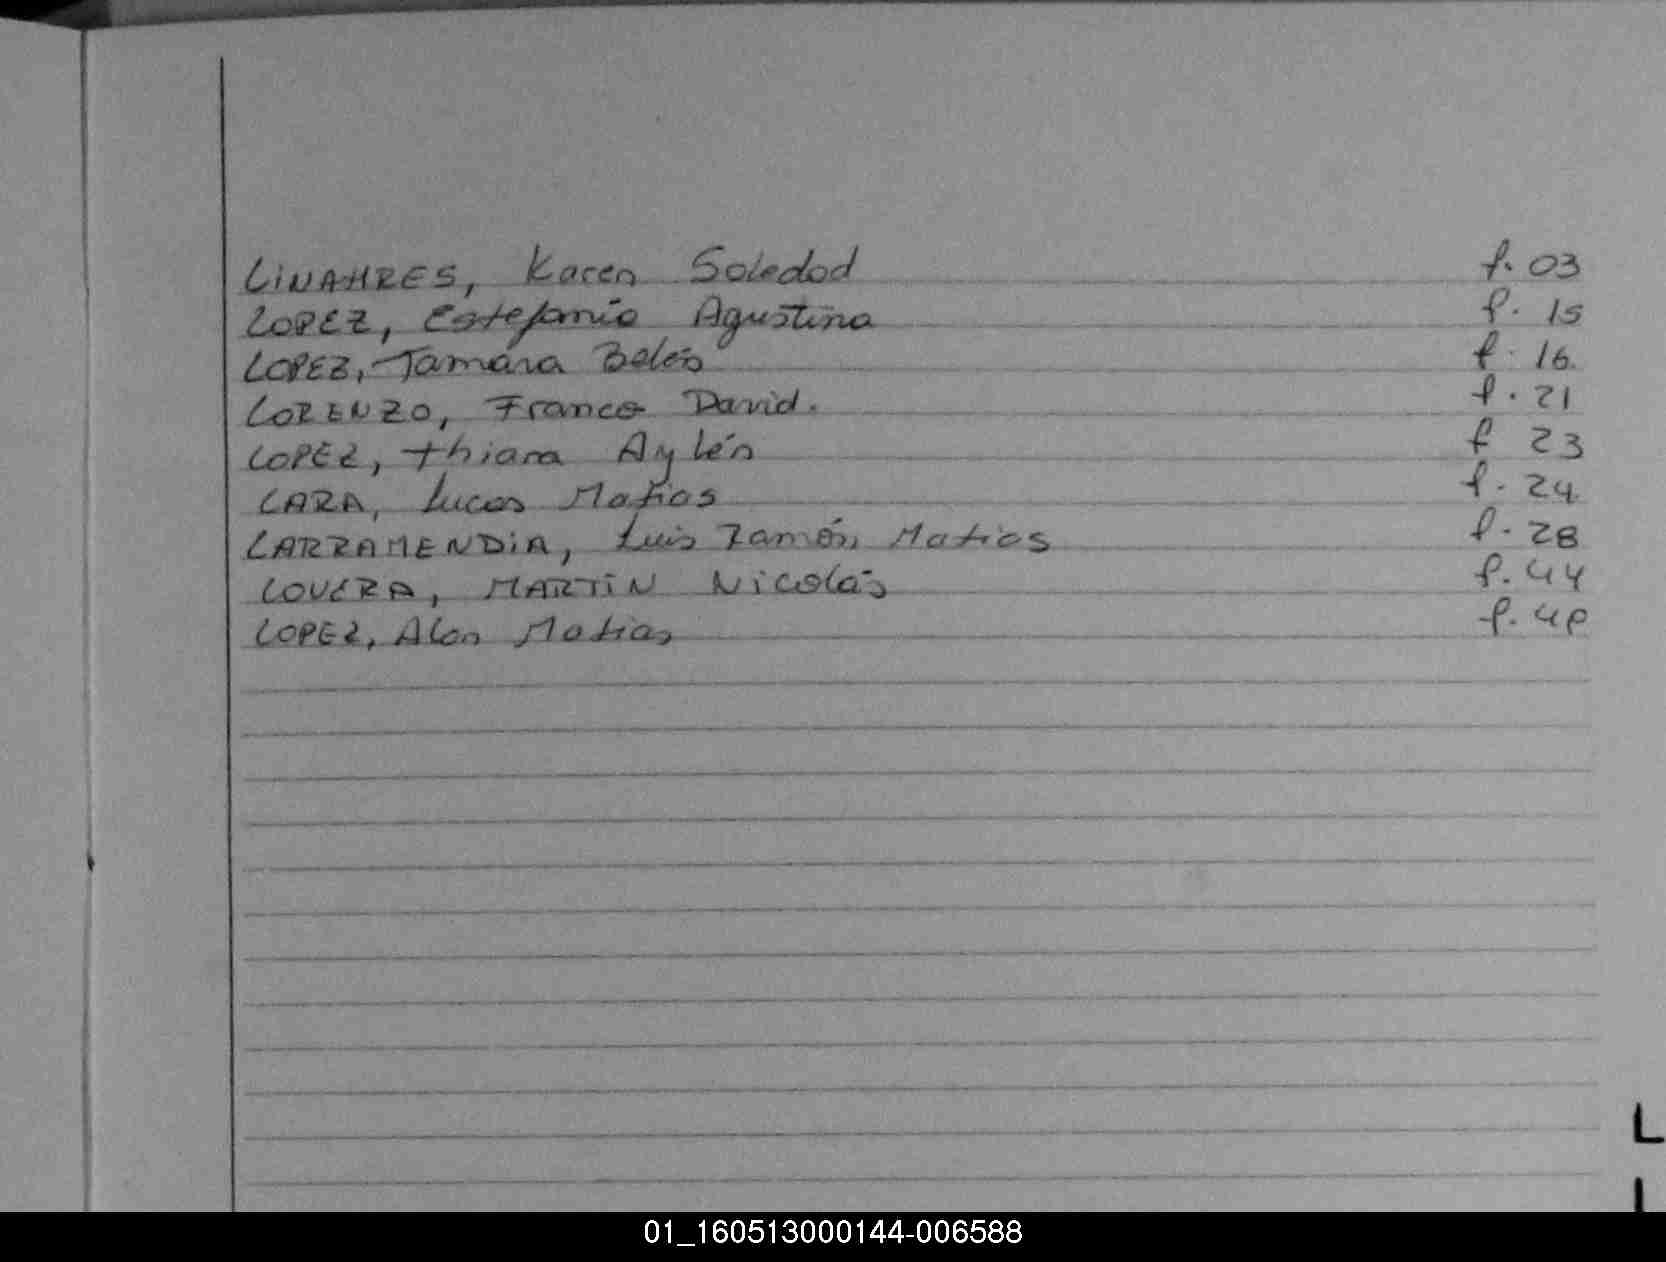 LINAHRES, Karen Soledad f. 03
LOPEZ, Estefanía Agustina f. 15
LOPEZ, Tamara Belén f. 16
LORENZO, Franco David. f. 21
LOPEZ, thiara Aylén f 23
LARA, Lucas Matias f. 24
LARRAMENDIA, Luis Ramón, Matias f. 28
LOVERA, MARTIN Nicolás f. 44
LOPEZ, Alan Matias f.
L
01_160513000144-006588